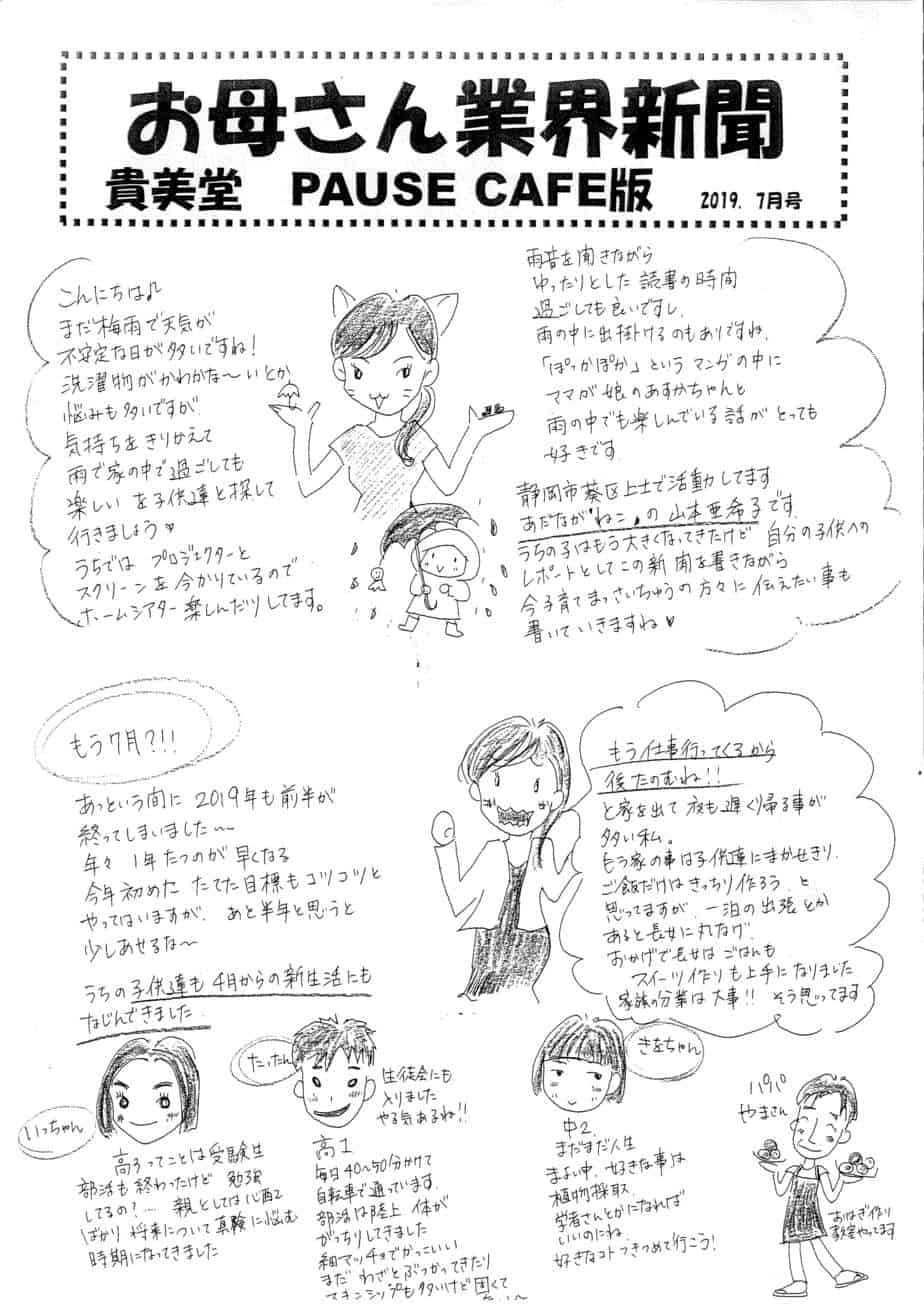 お母さん業界新聞
貴美堂 PAUSE CAFE版 2019. 7月号
こんにちは♪
まだ梅雨で天気が
不安定な日が多いですね!
洗濯物がかわかな〜いとか
悩みも多いですが
気持ちをきりかえて
雨で家の中で過ごしても
楽しい を子供達と探して
行きましょう♥
うちでは プロジェクターと
スクリーンを今かりているので
ホームシアター楽しんだりしてます。
雨音を聞きながら
ゆったりとした読書の時間
過ごしても良いですし、
雨の中に出掛けるのもありですね。
「ぽっかぽか」という マンガの中に
ママが娘のあすかちゃんと
雨の中でも楽しんでいる話が とっても
好きです
静岡市葵区上土で活動してます
あだなが"ねこ"の 山本亜希子です。
うちの子はもう大きくなってきたけど 自分の子供への
レポートとしてこの新聞を書きながら
今子育てまっさいちゅうの方々に伝えたい事も
書いていきますね♥
もう7月?!!
あっという間に 2019年も前半が
終ってしまいました〜
年々 1年たつのが 早くなる
今年初めた たてた目標もコツコツと
やってはいますが、あと半年と思うと
少しあせるな〜
うちの子供達も 4月からの新生活にも
なじんできました
もう仕事行ってくるから
後たのむね!!
と家を出て 夜も遅く帰る事が
多い私。
もう家の事は子供達にまかせきり、
ご飯だけはきっちり作ろう と
思ってますが、一泊の出張とか
あると長女に丸なげ、
おかげで長女は ごはんも
スイーツ作りも上手になりました
家族の分業は大事!! そう思ってます
いっちゃん
高3ってことは受験生
部活も終わったけど 勉強
してるの?… 親としては心配
ばかり 将来について真険に悩む
時期になってきました
たったん
生徒会にも
入りました
やる気あるね!!
高1
毎日40〜50分かけて
自転車で通っています。
部活は陸上 体が
がっちりしてきました
細マッチョでかっこいい
まだ わざとぶつかってきたり
スキンシップも多いけど 固くて
きをちゃん
中2、
まだまだ人生
まよい中、好きな事は
植物採取、
学者さんとかになれば
いいのにね、
好きなコトつきつめて行こう!
パパ
やまさん
おはぎ作り
教室やってます